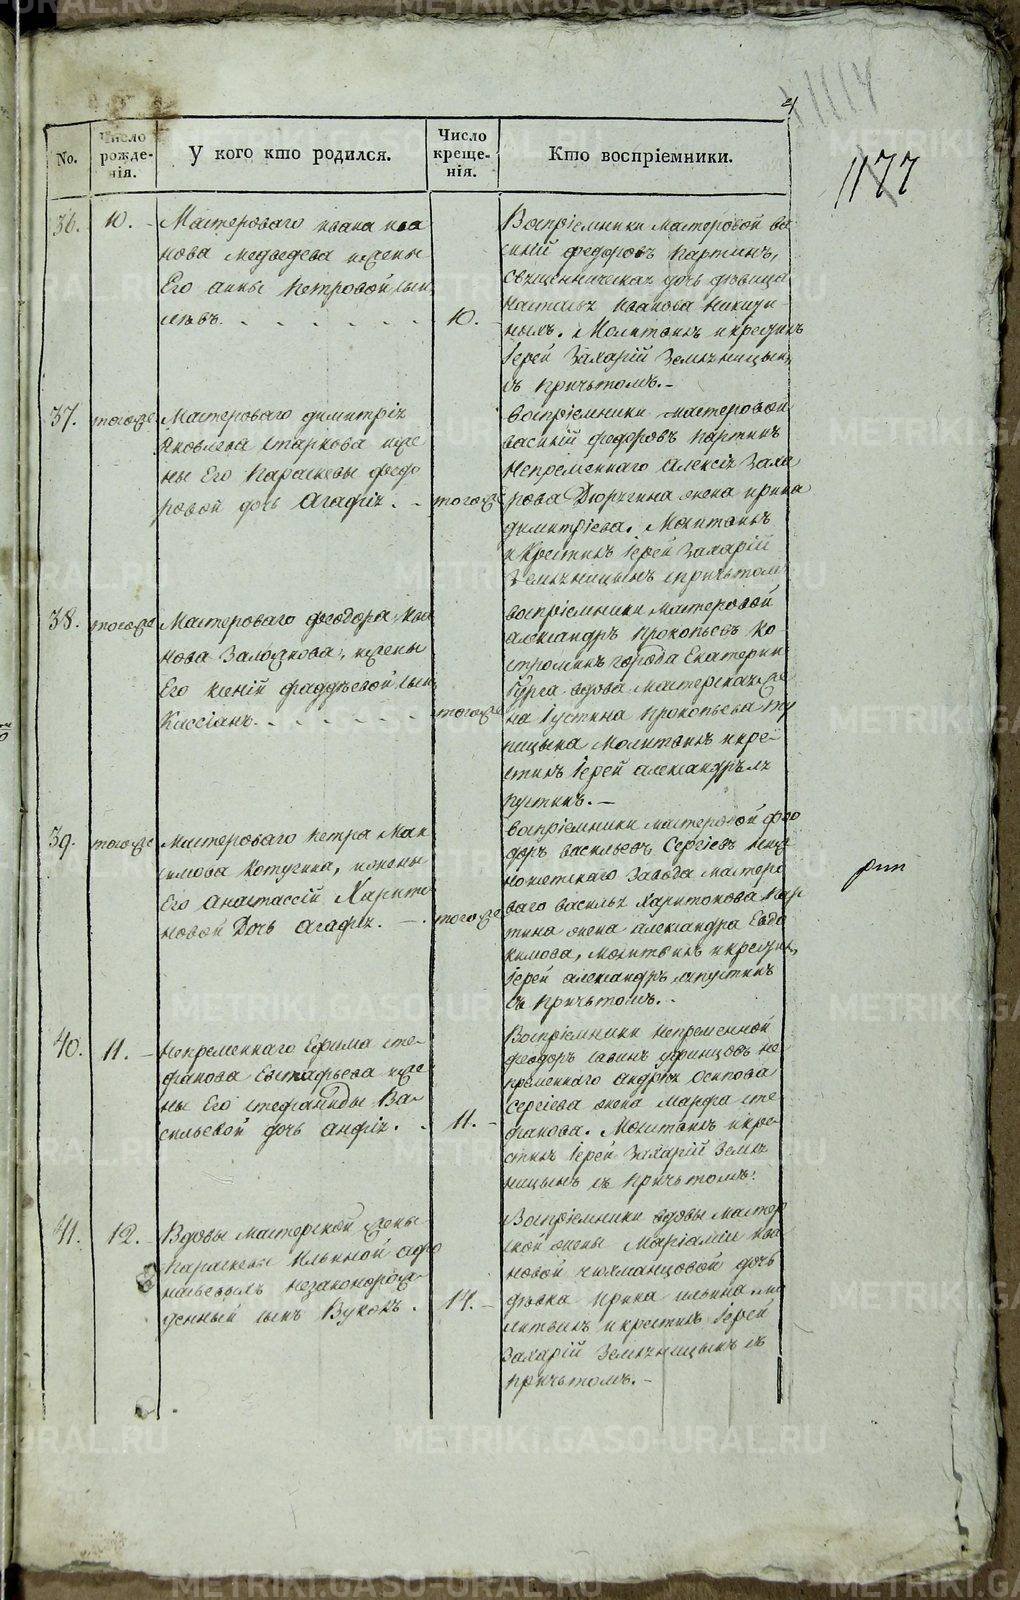 1114
1177
No.
Число рожде-нія.
У кого кто родился.
Число креще-нія.
Кто воспріемники.
36.
10.
Мастероваго ивана ива
нова медведева и жены
Его анны Петровой сынъ
левъ.
10.
Воспріемники мастеровой ва
силій федоровъ Картинъ,
священническая дочь девица
наталья Иванова
нымъ. Молитвилъ и крестилъ
Іерей Захарій Земляницынъ
съ причтомъ.
37.
тогоже
Мастероваго димитрія
Яковлева старкова и же
ны Его Параскевы федо
ровой дочь Агафія.
тогоже
воспріемники мастеровой
василій федоровъ Картинъ
непременнаго алексія Заха
рова Дюрягина жена ирина
димитріева. Молитвилъ
и крестилъ Іерей Захарій
Земляницынъ с причтомъ
38.
тогоже
Мастероваго феодора
нова Заложнова, и жены
Его ксеніи фаддеевой сынъ
Кассіанъ.
тогоже
воспріемники мастеровой
александръ прокопьевъ ко
строминъ города Екатерин
бурга вдова мастерская же
на Іустина Прокопьева
пицына молитвилъ и кре-
стилъ Іерей александръ ла
пустинъ.
39.
тогоже
мастероваго Петра Мак
симова Котугина, и жены
Его анастассіи Харито
новой Дочь агафія.
тогоже
воспріемники мастеровой фео
доръ васильевъ Сергіевъ
завода мастеро
ваго василья харитонова Кар
тина жена александра Евдо
кимова, молитвилъ и крестилъ
Іерей александръ лапустинъ
съ причтомъ.
40.
11.
непременнаго Ефима сте-
фанова Евстафьева и же
ны Его стефаниды Ва-
сильевой дочь анфія.
11.
Воспріемники непременной
феодоръ савинъ уфинцовъ не
пременнаго андрея осипова
Сергіева жена марфа сте
фанова. Молитвилъ и кре-
стилъ Іерей Захарій Земля
ницынъ съ причтомъ.
41.
12.
Вдовы мастерской жены
Параскевы Ильиной афо
насьевыхъ незаконорож-
денный сынъ Вуколъ.
14.
Воспріемники вдовы мастер
ской жены Маріамии ива
новой чюхманцовой дочь
девка ирина ильина мо
литвилъ и крестилъ Іерей
Захарій Земляницынъ съ
причтомъ.
METRIKI.GASO-URAL.RU